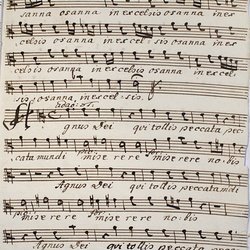 sanna osanna in excelsis osanna in ex
celsis osanna in excel- sis osanna in ex
celsis osanna in excelsis osanna in excel-
sis osanna in excel- sis.
Adagio
Agnus Dei qui tollis peccata pec
cata mundi miserere miserere nobis
Agnus Dei qui tollis peccata mdi
miserere miserere no- bis
Agnus Dei qui tollis peccata